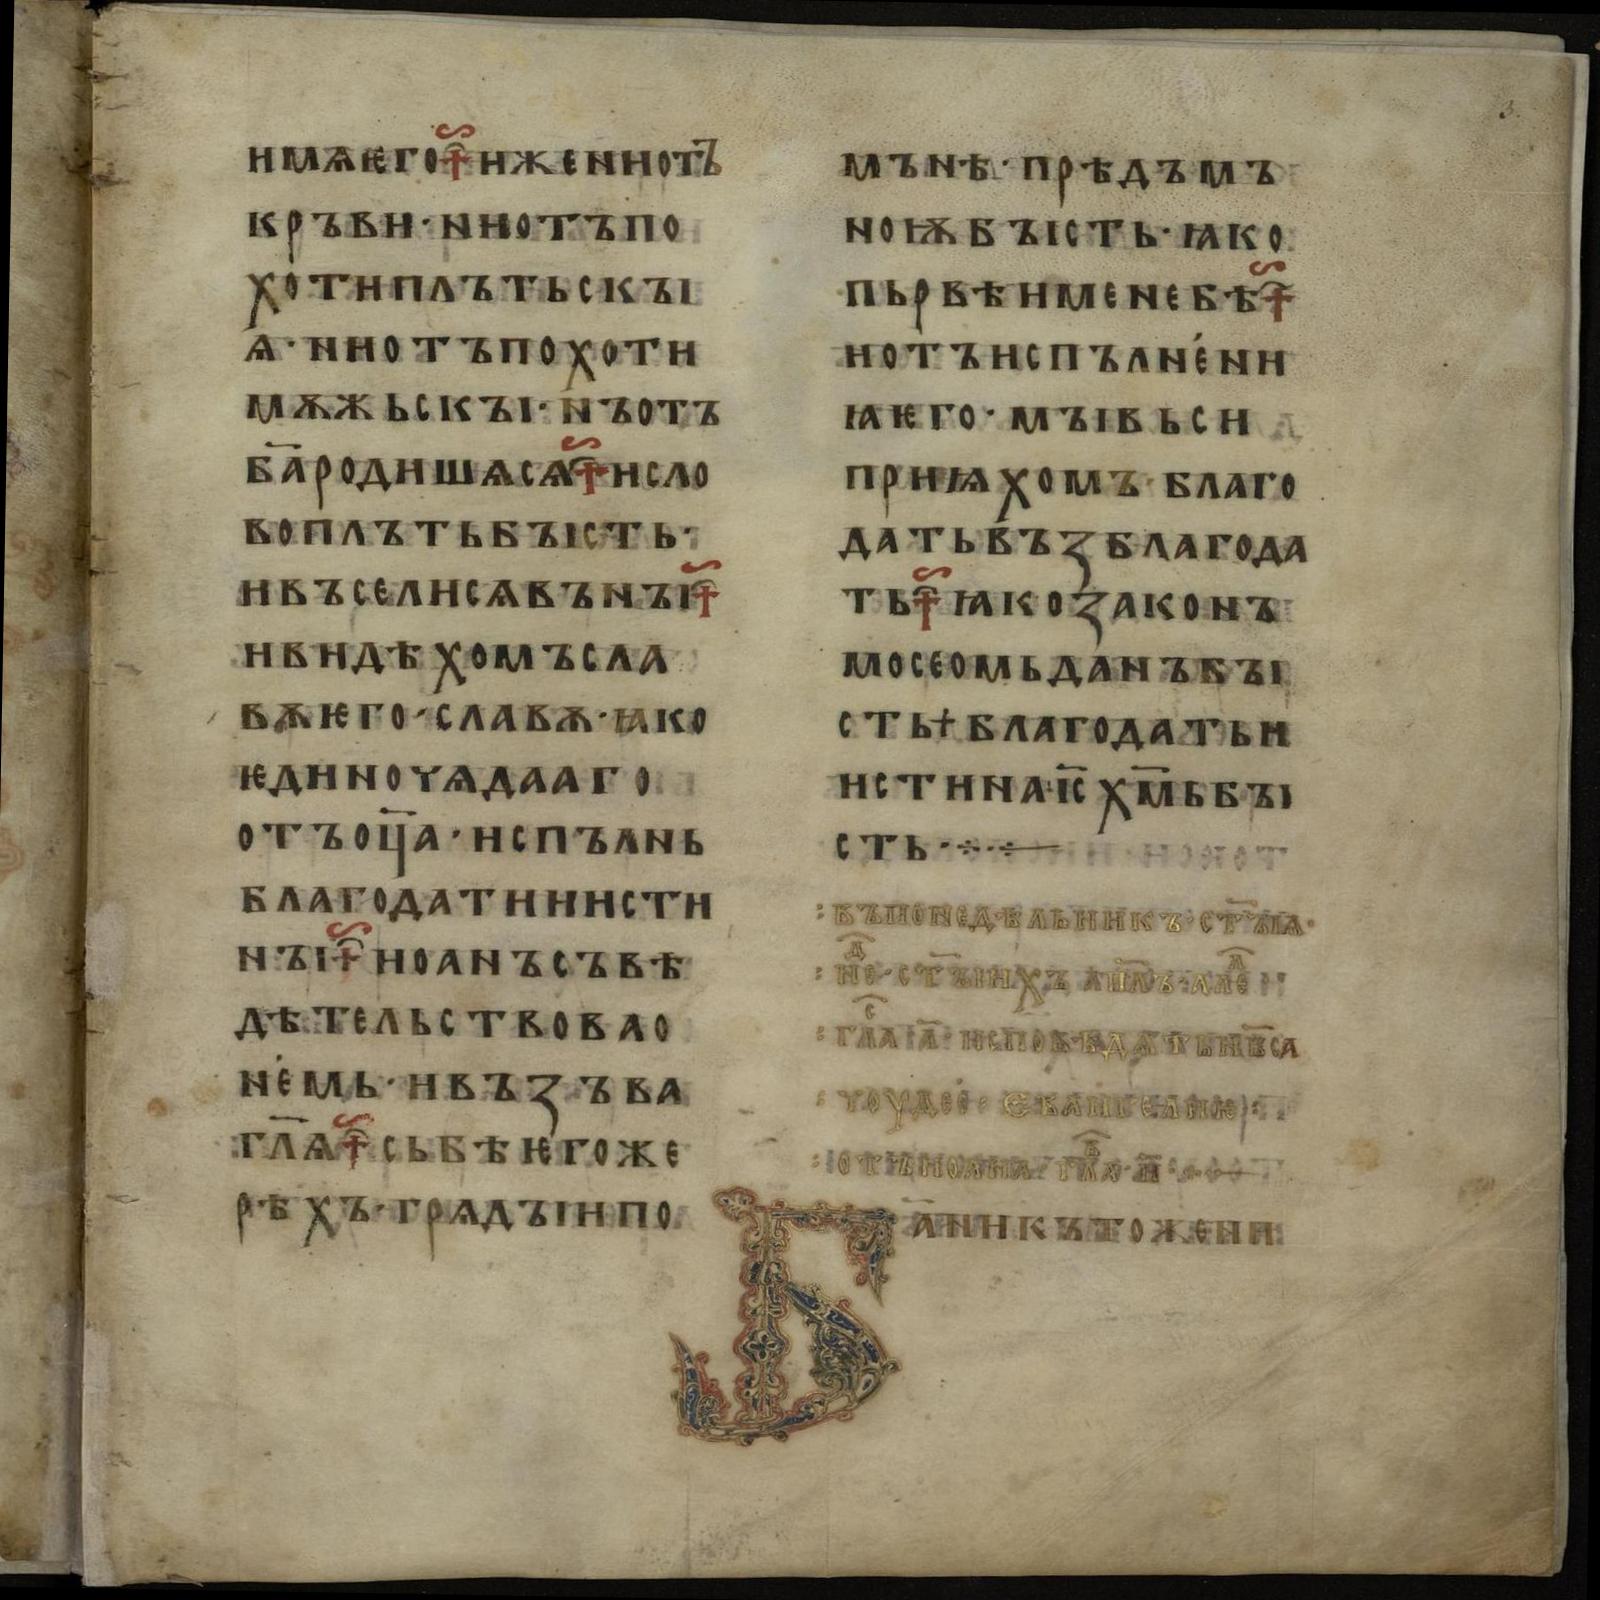 имѧѥго ☦ иже ни отъ
кръви · ни отъ по
хоти плътьскꙑ
ѧ · ни отъ похоти
мѫжьскꙑ · нъ отъ
ба҃ родишѧсѧ ☦ и сло
во плъть бꙑсть ·
и въселисѧ въ нꙑ ☦
и видѣхомъ сла
вѫ ѥго · славѫ · ꙗко
ѥдиночѧдааго
отъ оц҃а · испълнь
благодати и исти
нꙑ ☦ иоанъ съвѣ
дѣтельствова о
немь · и възъва
гл҃ѧ ☦ сь бѣ ѥгоже
рѣхъ · грѧдꙑи по
мънѣ · прѣдъ мъ
ноѭ бꙑсть · ꙗко
пьрвѣи мене бѣ ☦
и отъ испълнени
ꙗ ѥго · мꙑ вьси
приѩхомъ · благо
дать въз благода
ть ☦ ꙗко законъ
мосеомь данъ бꙑ
сть + благодать и
истина іс҃ хм҃ь бꙑ
сть ·
въ понедѣльникъ · ст҃ꙑѩ ·
нед · ст҃ꙑихъ ап҃лъ · але
гла҃с а҃ · исповѣдѧтьнб҃са
чоудес · еванѓелиѥ
отъ иоана · гла҃в · н҃ ·
Б а҃ никътоже ни
3.